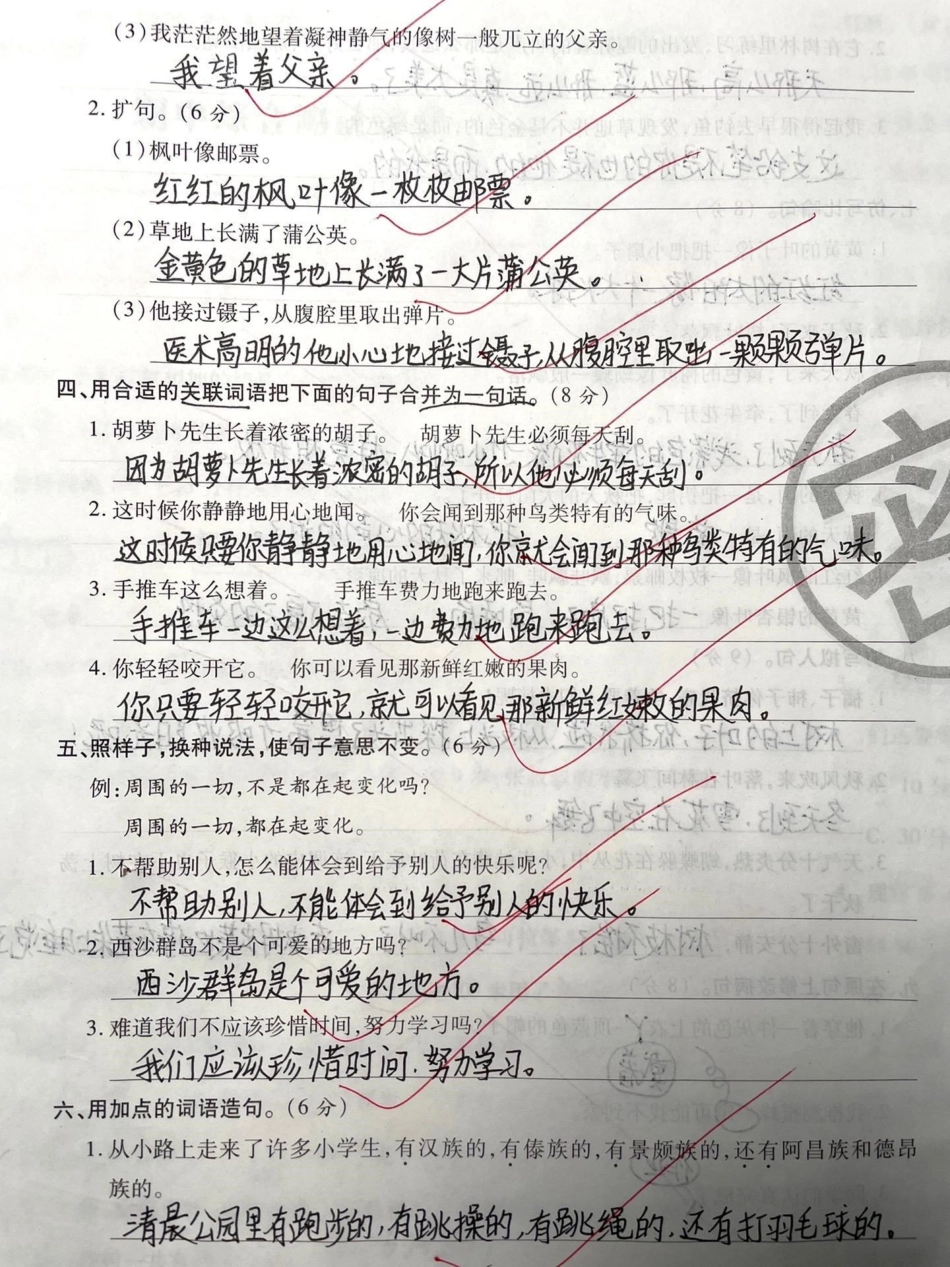 (3)我茫茫然地望着凝神静气的像树一般兀立的父亲。
我望着父亲。
2.扩句。(6分)
(1)枫叶像邮票。
红红的枫叶像一枚枚邮票。
(2)草地上长满了蒲公英。
金黄色的草地上长满了一大片蒲公英。
(3)他接过镊子,从腹腔里取出弹片。
医术高明的他小心地接过镊子,从腹腔里取出一颗颗弹片。
四、用合适的关联词语把下面的句子合并为一句话。(8分)
1.胡萝卜先生长着浓密的胡子。 胡萝卜先生必须每天刮。
因为胡萝卜先生长着浓密的胡子,所以他必须每天刮。
2.这时候你静静地用心地闻。 你会闻到那种鸟类特有的气味。
这时候只要你静静地用心地闻,你就会闻到那种鸟类特有的气味。
3.手推车这么想着。 手推车费力地跑来跑去。
手推车一边这么想着,一边费力地跑来跑去。
4.你轻轻咬开它。 你可以看见那新鲜红嫩的果肉。
你只要轻轻咬开它,就可以看见那新鲜红嫩的果肉。
五、照样子,换种说法,使句子意思不变。(6分)
例:周围的一切,不是都在起变化吗?
周围的一切,都在起变化。
1.不帮助别人,怎么能体会到给予别人的快乐呢?
不帮助别人,不能体会到给予别人的快乐。
2.西沙群岛不是个可爱的地方吗?
西沙群岛是个可爱的地方。
3.难道我们不应该珍惜时间,努力学习吗?
我们应该珍惜时间,努力学习。
六、用加点的词语造句。(6分)
1.从小路上走来了许多小学生,有汉族的,有傣族的,有景颇族的,还有阿昌族和德昂
族的。
清晨公园里有跑步的,有跳操的,有跳绳的,还有打羽毛球的。
密